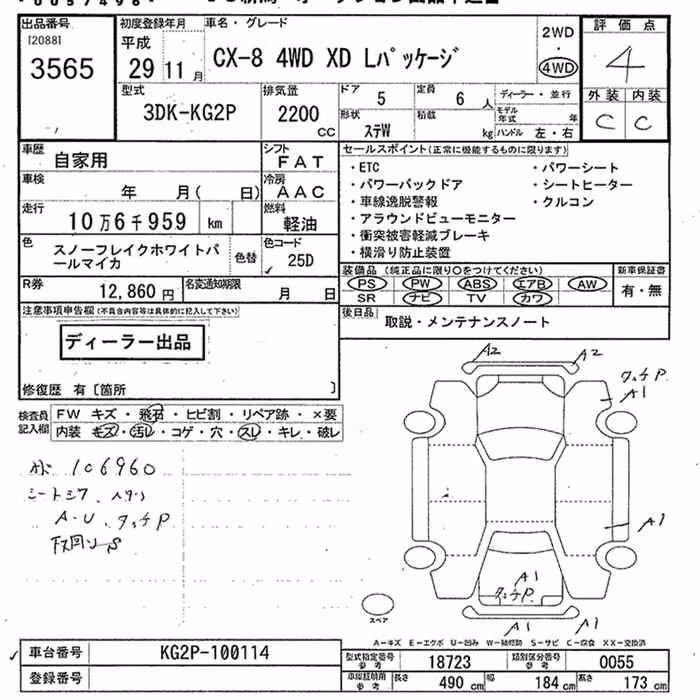 出品番号
[2088]
3565
初度登録年月
平成
29 11月
車名・グレード
CX-8 4WD XD Lパッケージ
2WD
・
4WD
評価点
4
外装 内装
C C
型式
3DK-KG2P
排気量
2200
cc
ドア
5
定員
6 人
ディーラー・並行
モデル年式 年
形状
ステW
積載
kg
ハンドル 左・右
車歴
自家用
シフト
FAT
車検
年 月( 日)
冷房
AAC
走行
10万6千959 km
燃料
軽油
色
スノーフレイクホワイトパールマイカ
色替
色コード
25D
R券
12,860円
名変通知期限
月 日
セールスポイント(正常に機能するものに限ります)
・ETC
・パワーバックドア
・車線逸脱警報
・アラウンドビューモニター
・衝突被害軽減ブレーキ
・横滑り防止装置
・パワーシート
・シートヒーター
・クルコン
装備品(純正品に限り○をつけてください)
PS PW ABS エアB AW
SR ナビ TV カワ
新車保証書
有・無
後日品
取説・メンテナンスノート
注意事項申告欄(不具合内容等は具体的に記入して下さい)
ディーラー出品
修復歴 有〔箇所 〕
検査員記入欄
FW キズ・飛石・ヒビ割・リペア跡・×要
内装 キズ・汚レ・コゲ・穴・スレ・キレ・破レ
106960
A・U、タッチP
下回りS
A2
A2
タッチP
A1
A1
A1
タッチP
A1
A1
スペア
A−キズ E−エクボ U−凹み W−補修跡 S−サビ C−腐食 XX−交換済
車台番号
KG2P-100114
登録番号
型式指定番号 参考
18723
類別区分番号 参考
0055
車庫証明用 参考
長さ 490 cm
幅 184 cm
高さ 173 cm